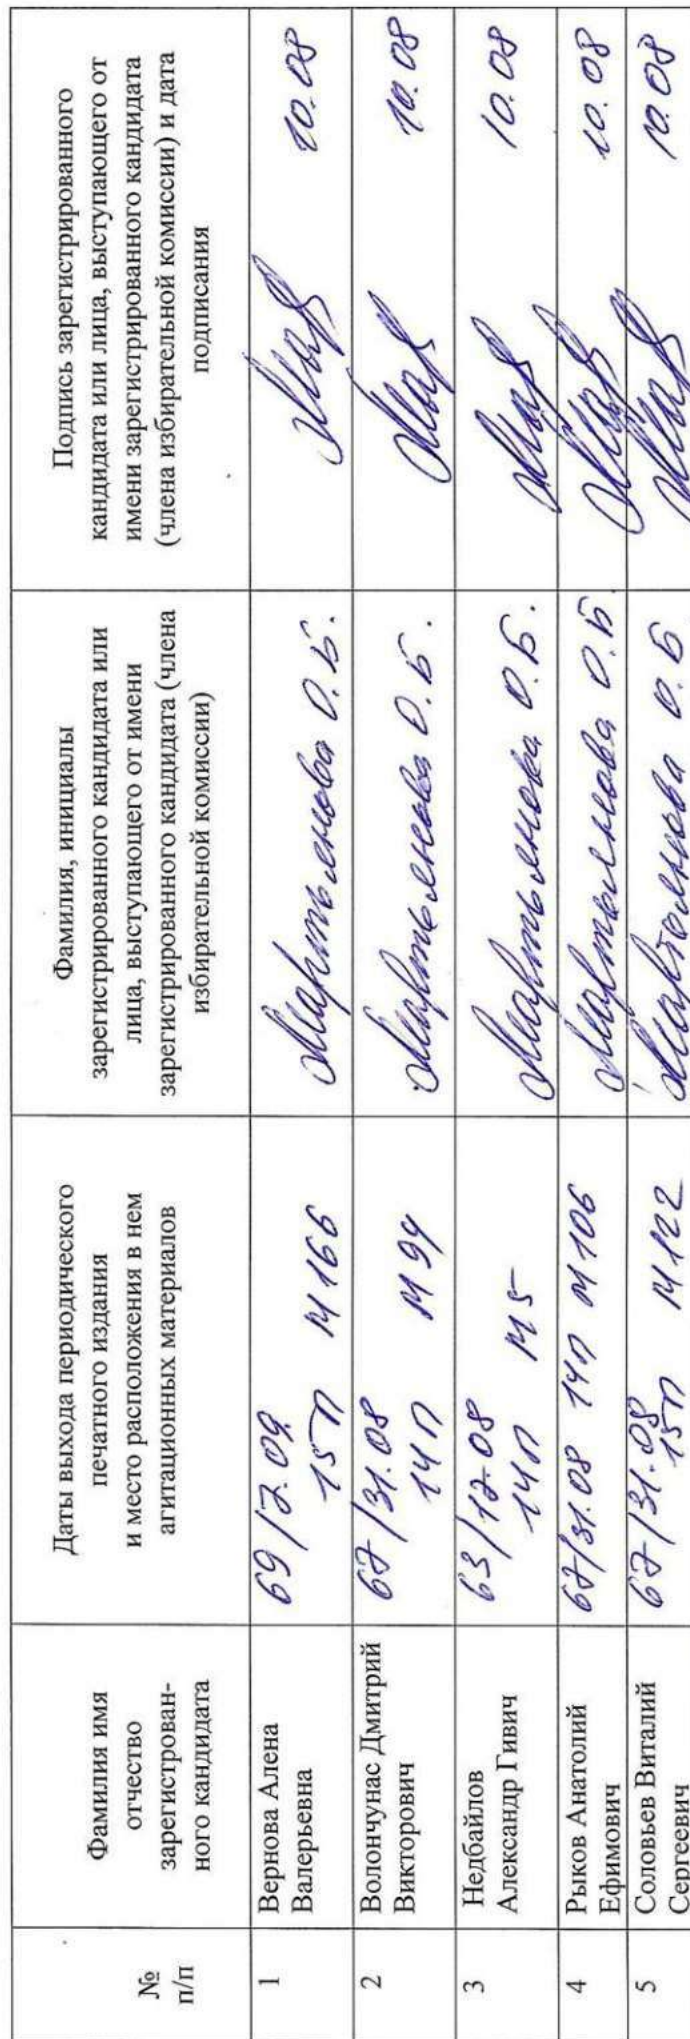 №
п/п
Фамилия имя
отчество
зарегистрирован-
ного кандидата
Даты выхода периодического
печатного издания
и место расположения в нем
агитационных материалов
Фамилия, инициалы
зарегистрированного кандидата или
лица, выступающего от имени
зарегистрированного кандидата (члена
избирательной комиссии)
Подпись зарегистрированного
кандидата или лица, выступающего от
имени зарегистрированного кандидата
(члена избирательной комиссии) и дата
подписания
1
Вернова Алена
Валерьевна
69/7.09
15п М166
Мартьянова О.Б.
10.08
2
Волончунас Дмитрий
Викторович
67/31.08
14п М94
Мартьянова О.Б.
10.08
3
Недбайлов
Александр Гивич
63/17.08
14п М5
Мартьянова О.Б.
10.08
4
Рыков Анатолий
Ефимович
67/31.08 14п М106
Мартьянова О.Б
10.08
5
Соловьев Виталий
Сергеевич
67/31.08
15п М122
Мартьянова О.Б
10.08